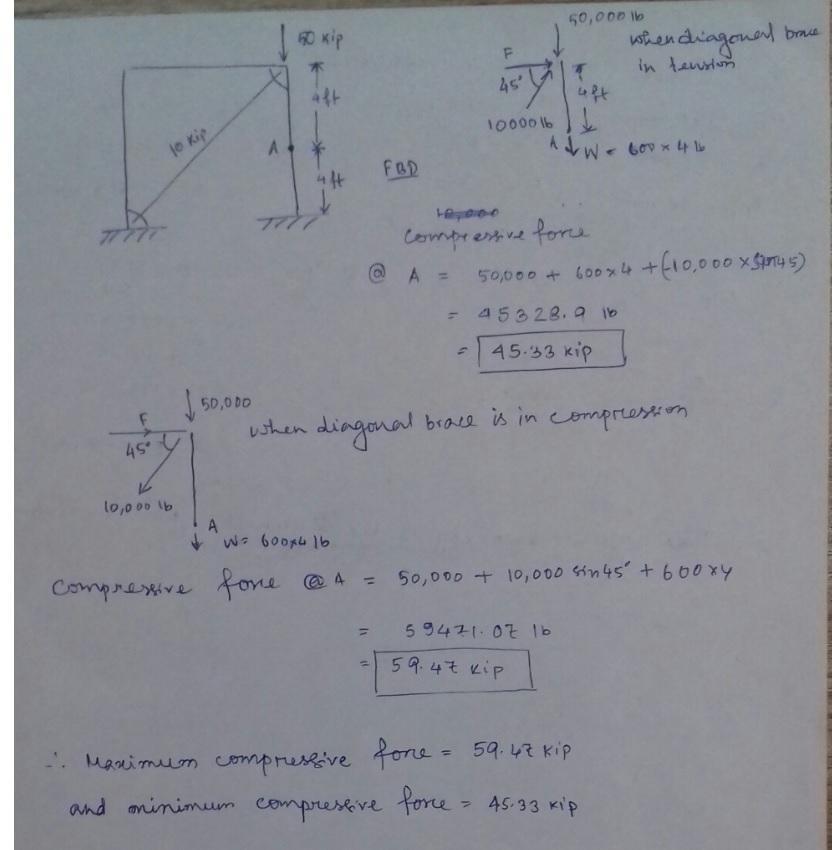 50 Kip
4ft
10 Kip
A
4ft
FBD
50,000 lb
when diagonal brace
in tension
F
45°
4ft
10000 lb
A W = 600 × 4 lb
compressive force
@ A = 50,000 + 600×4 + (-10,000 × sin45)
= 45328.9 lb
= 45.33 kip
50,000
when diagonal brace is in compression
F
45°
10,000 lb
A
W = 600×4 lb
Compressive force @ A = 50,000 + 10,000 sin45° + 600×4
= 59471.07 lb
= 59.47 kip
∴ Maximum compressive force = 59.47 kip
and minimum compressive force = 45.33 kip